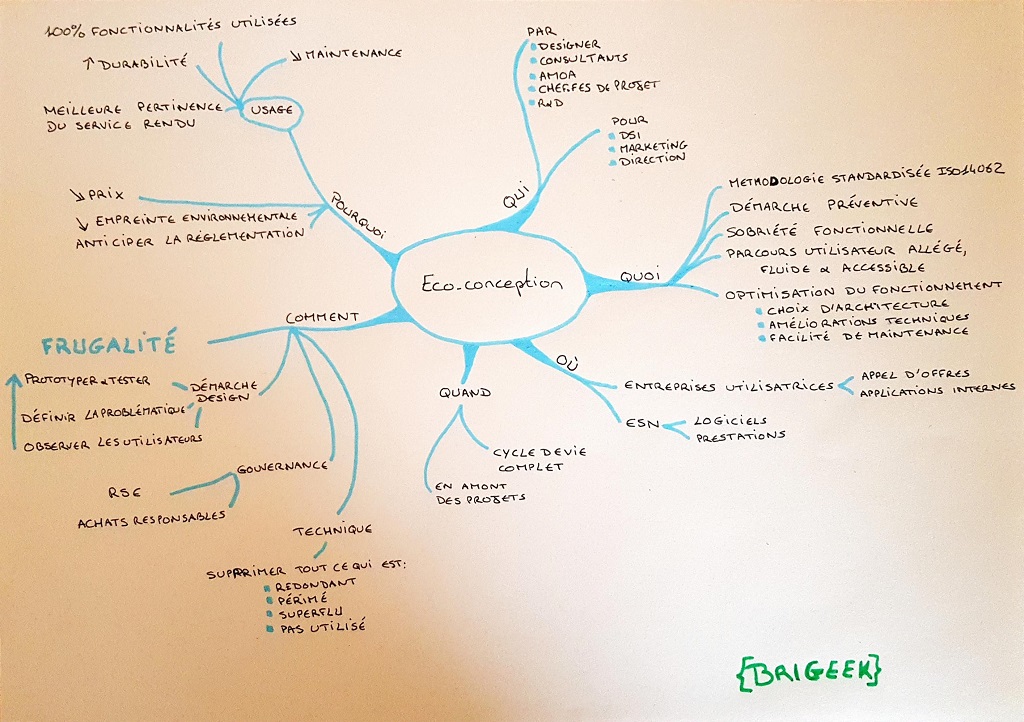 Eco-conception
POURQUOI
USAGE
100% FONCTIONNALITÉS UTILISÉES
↑ DURABILITÉ
↘ MAINTENANCE
MEILLEURE PERTINENCE
DU SERVICE RENDU
↘ PRIX
↘ EMPREINTE ENVIRONNEMENTALE
ANTICIPER LA RÉGLEMENTATION
QUI
PAR
DESIGNER
CONSULTANTS
AMOA
CHEF.FES DE PROJET
R&D
POUR
DSI
MARKETING
DIRECTION
QUOI
METHODOLOGIE STANDARDISÉE ISO14062
DÉMARCHE PRÉVENTIVE
SOBRIÉTÉ FONCTIONNELLE
PARCOURS UTILISATEUR ALLÉGÉ,
FLUIDE & ACCESSIBLE
OPTIMISATION DU FONCTIONNEMENT
CHOIX D'ARCHITECTURE
AMÉLIORATIONS TECHNIQUES
FACILITÉ DE MAINTENANCE
OÙ
ENTREPRISES UTILISATRICES
APPEL D'OFFRES
APPLICATIONS INTERNES
ESN
LOGICIELS
PRESTATIONS
QUAND
CYCLE DE VIE
COMPLET
EN AMONT
DES PROJETS
COMMENT
FRUGALITÉ
DÉMARCHE
DESIGN
PROTOTYPER & TESTER
DÉFINIR LA PROBLÉMATIQUE
OBSERVER LES UTILISATEURS
GOUVERNANCE
RSE
ACHATS RESPONSABLES
TECHNIQUE
SUPPRIMER TOUT CE QUI EST:
REDONDANT
PÉRIMÉ
SUPERFLU
PAS UTILISÉ
{BRIGEEK}